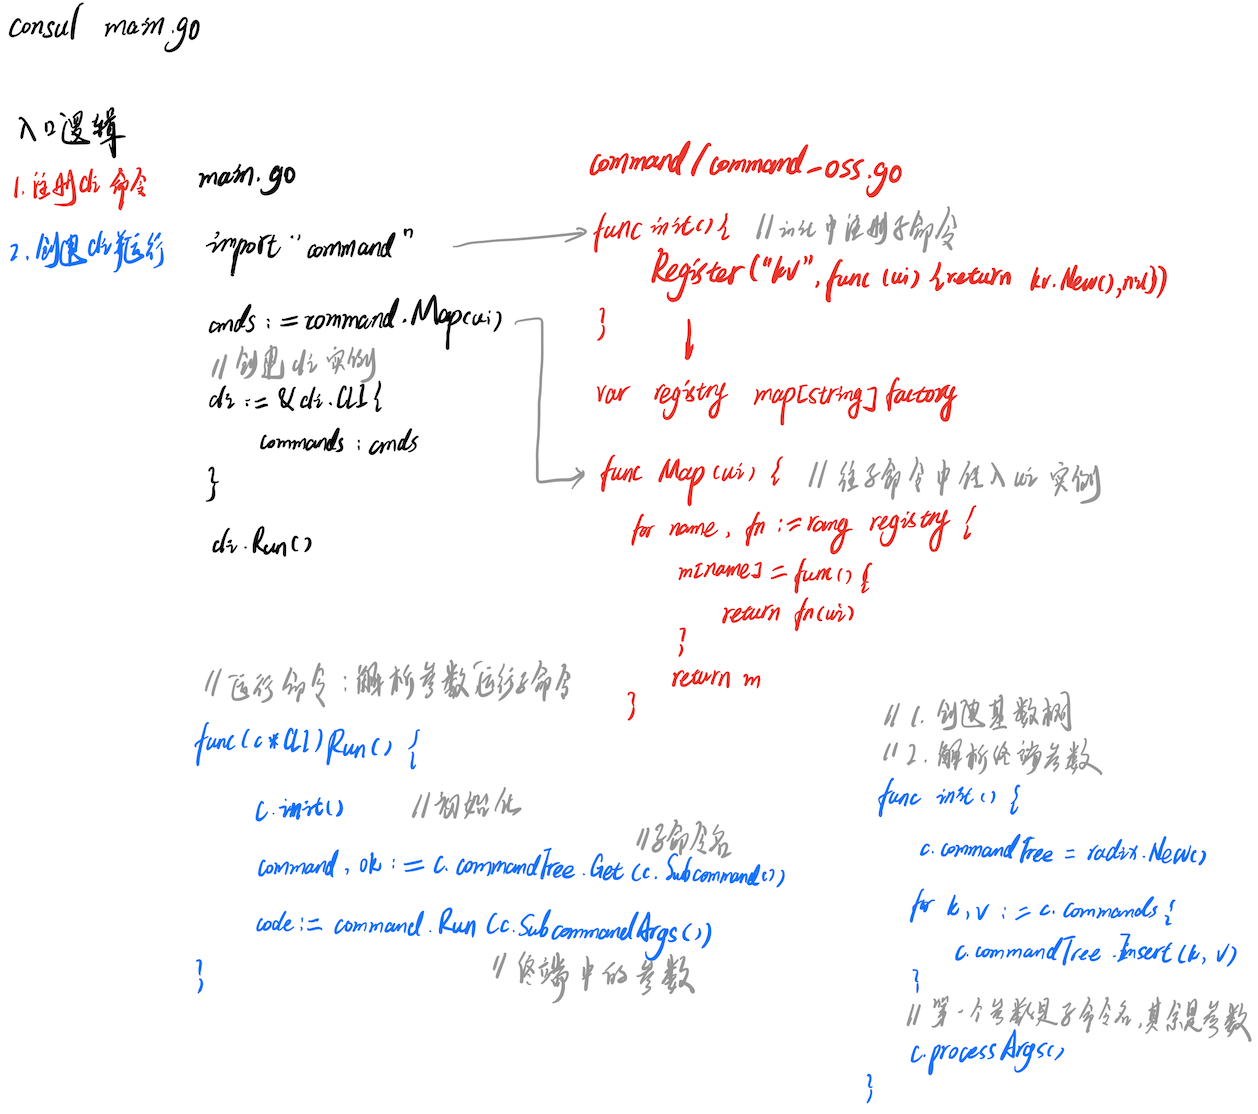 consul main.go
入口逻辑
1. 注册cli 命令
2. 创建cli并运行
main.go
import "command"
cmds := command.Map(ui)
// 创建cli 实例
cli := &cli.CLI{
commands : cmds
}
cli.Run()
command/command_oss.go
func init() { // init 中注册子命令
Register("kv", func (ui) {return kv.New(), nil})
}
var registry map[string] factory
func Map (ui) { // 往子命令中注入 ui 实例
for name, fn := rang registry {
m[name] = func() {
return fn(ui)
}
return m
}
// 运行命令 : 解析参数 运行子命令
func (c *CLI) Run() {
c.init() // 初始化
// 子命令名
command, ok := c.commandTree.Get(c.Subcommand())
code := command.Run(c.SubcommandArgs())
// 终端中的参数
}
// 1. 创建基数树
// 2. 解析终端参数
func init() {
c.commandTree = radix.New()
for k, v := c.commands {
c.commandTree.Insert(k, v)
}
// 第一个参数是子命令名, 其余是参数
c.processArgs()
}